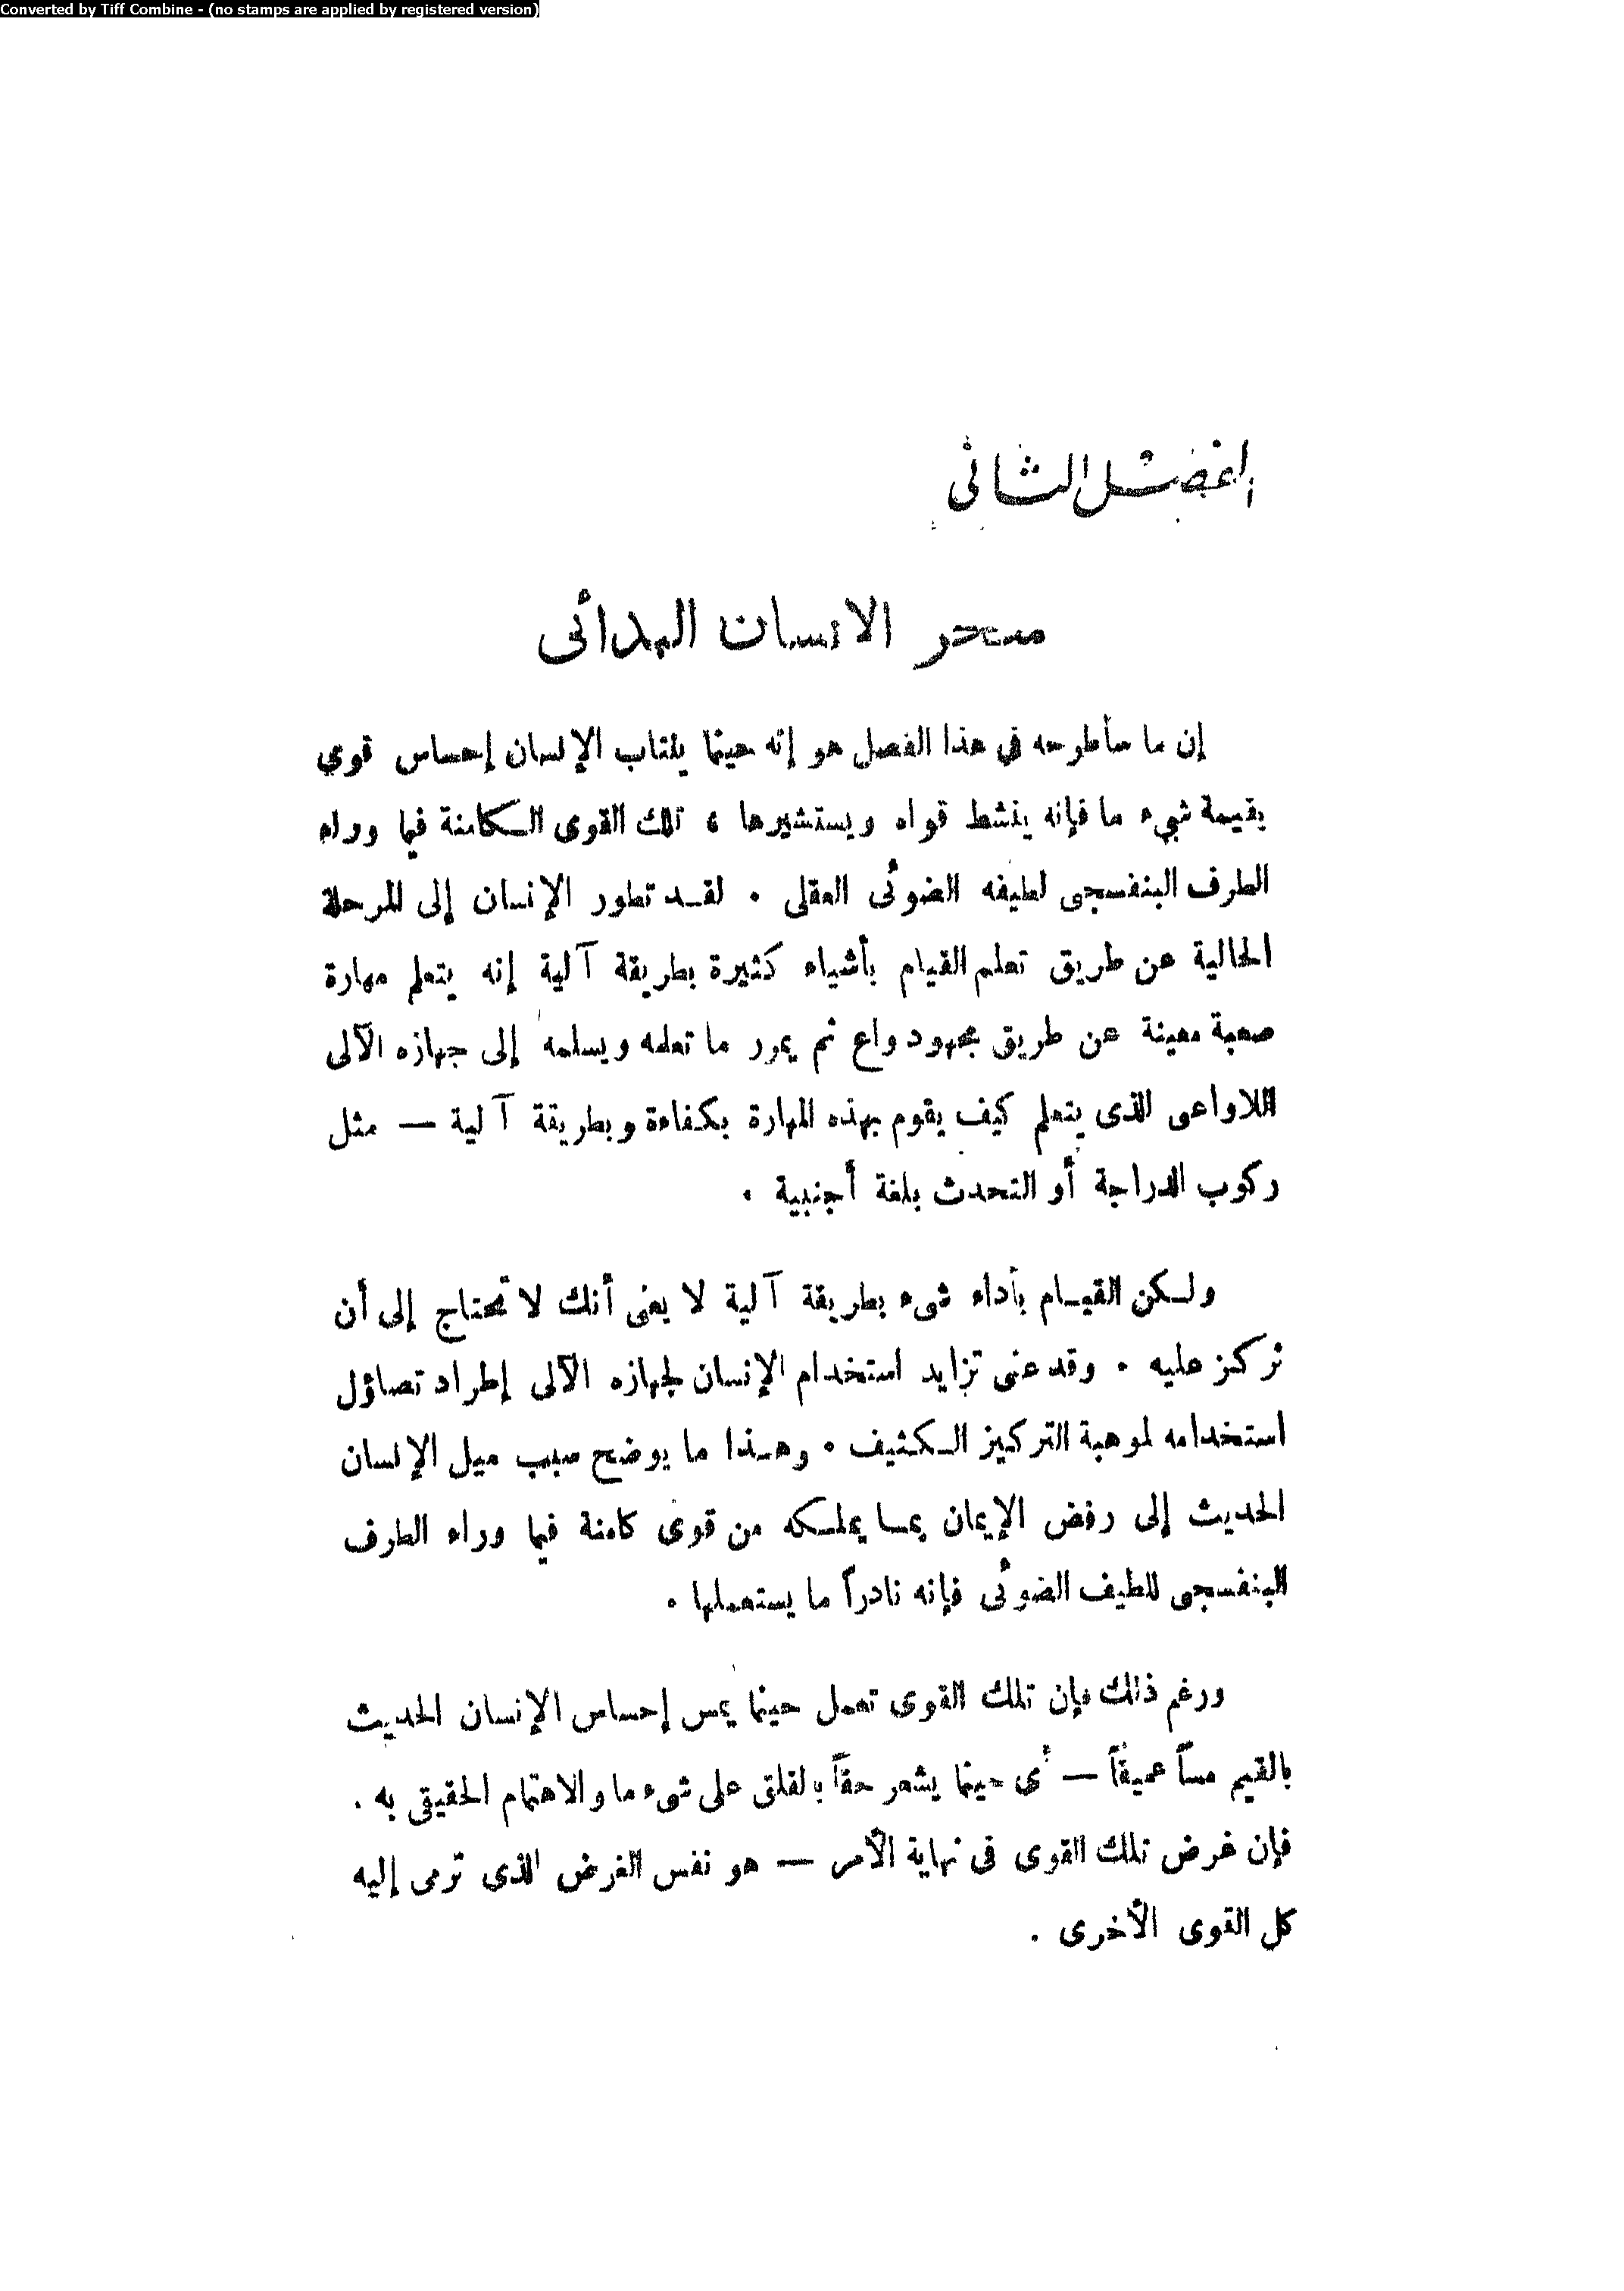 Converted by Tiff Combine - (no stamps are applied by registered version)
الفصل الثانى
سحر الانسان البدائى
إن ما سأطرحه فى هذا الفصل هو إنه حينما ينتاب الإنسان إحساس قوى
بقيمة شىء ما فإنه ينشط قواه ويستشيرها ، تلك القوى الكامنة فيما وراء
الطرف البنفسجى لطيفه الضوئى العقلى . لقد تطور الإنسان إلى المرحلة
الحالية عن طريق تعلم القيام بأشياء كثيرة بطريقة آلية إنه يتعلم مهارة
صعبة معينة عن طريق مجهود واع ثم يمرر ما تعلمه ويسلمه إلى جهازه الآلى
اللاواعى الذى يتعلم كيف يقوم بهذه المهارة بكفاءة وبطريقة آلية — مثل
ركوب الدراجة أو التحدث بلغة أجنبية .
ولكن القيام بأداء شىء بطريقة آلية لا يعنى أنك لا تحتاج إلى أن
تركز عليه . وقد عنى تزايد استخدام الإنسان لجهازه الآلى إطراد تضاؤل
استخدامه لموهبة التركيز الكثيف . وهذا ما يوضح سبب ميل الإنسان
الحديث إلى رفض الإيمان بما يملكه من قوى كامنة فيما وراء الطرف
البنفسجى للطيف الضوئى فإنه نادراً ما يستعملها .
ورغم ذلك فإن تلك القوى تعمل حينما يمس إحساس الإنسان الحديث
بالقيم مساً عميقاً — أى حينما يشعر حقاً بالقلق على شىء ما والاهتمام الحقيقى به .
فإن غرض تلك القوى فى نهاية الأمر — هو نفس الغرض الذى ترمى إليه
كل القوى الأخرى .